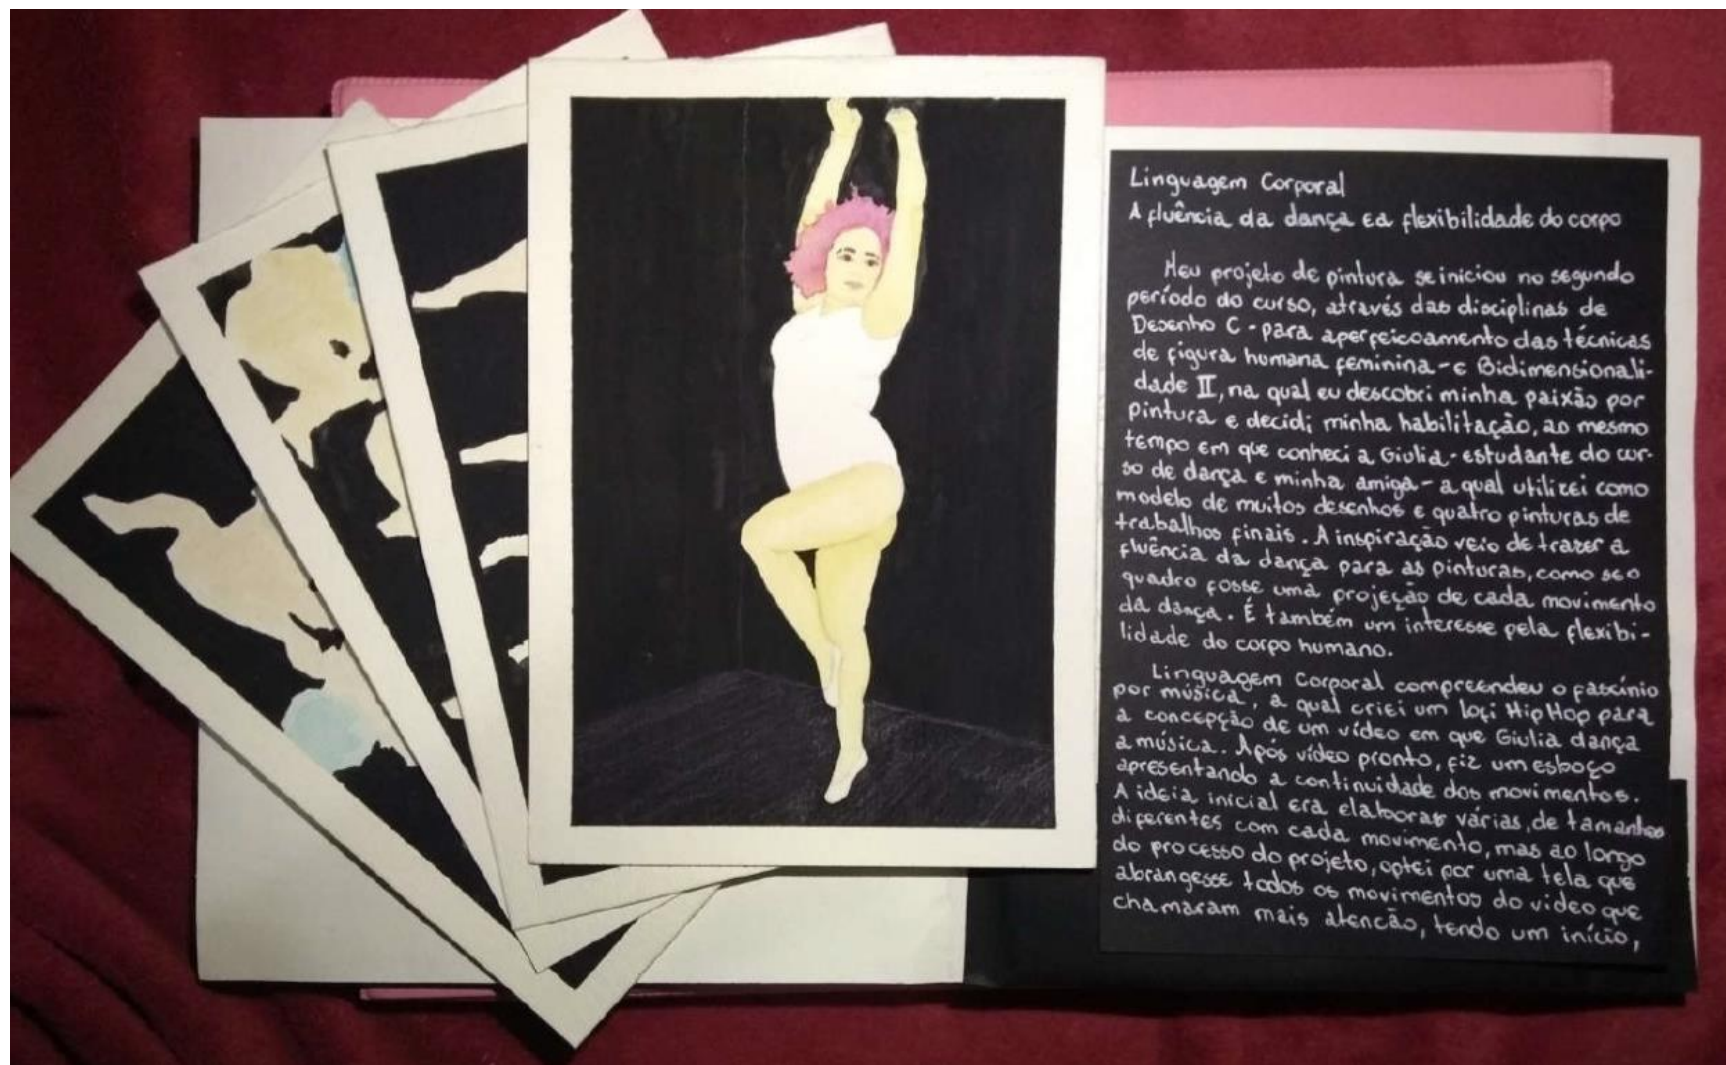 Linguagem Corporal
A fluência da dança e a flexibilidade do corpo
Meu projeto de pintura se iniciou no segundo
período do curso, através das disciplinas de
Desenho C - para aperfeicoamento das técnicas
de figura humana feminina - e Bidimensionali-
dade II, na qual eu descobri minha paixão por
pintura e decidi minha habilitação, ao mesmo
tempo em que conheci a Giulia - estudante do cur-
so de dança e minha amiga - a qual utilizei como
modelo de muitos desenhos e quatro pinturas de
trabalhos finais. A inspiração veio de trazer a
fluência da dança para as pinturas, como se o
quadro fosse uma projeção de cada movimento
da dança. É também um interesse pela flexibi-
lidade do corpo humano.
Linguagem Corporal compreendeu o fascínio
por música, a qual criei um lofi Hip Hop para
a concepção de um vídeo em que Giulia dança
a música. Após vídeo pronto, fiz um esboço
apresentando a continuidade dos movimentos.
A ideia inicial era elaborar várias, de tamanhos
diferentes com cada movimento, mas ao longo
do processo do projeto, optei por uma tela que
abrangesse todos os movimentos do video que
chamaram mais atencão, tendo um início,